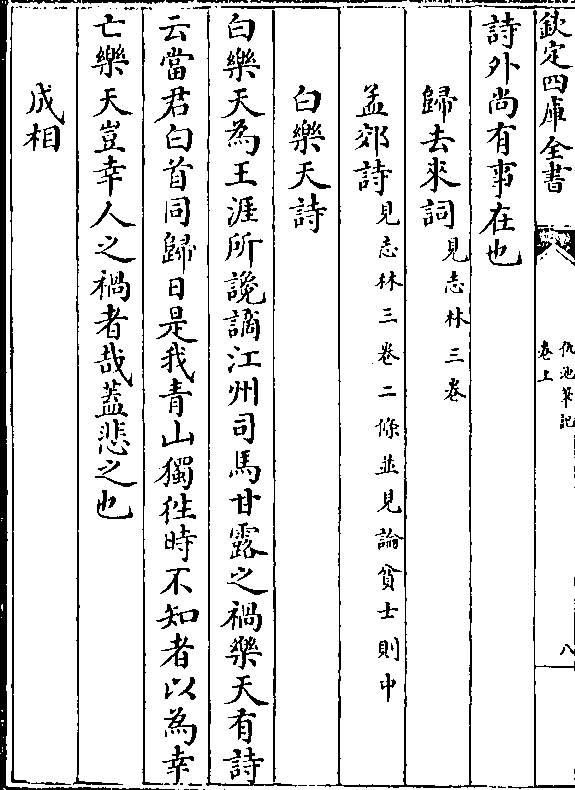 欽定四庫全書
仇池筆記
卷上
八
詩外尚有事在也
歸去來詞見志林三卷
孟郊詩見志林三卷二條並見論貧士則中
白樂天詩
白樂天為王涯所讒謫江州司馬甘露之禍樂天有詩
云當君白首同歸日是我青山獨徃時不知者以為幸
亡樂天豈幸人之禍者哉蓋悲之也
成相